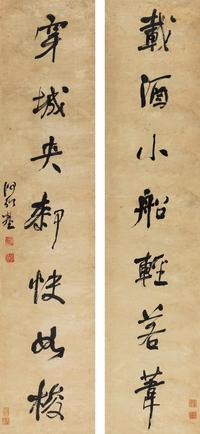 載酒小船輕若葦
穿城快如梭
何紹基